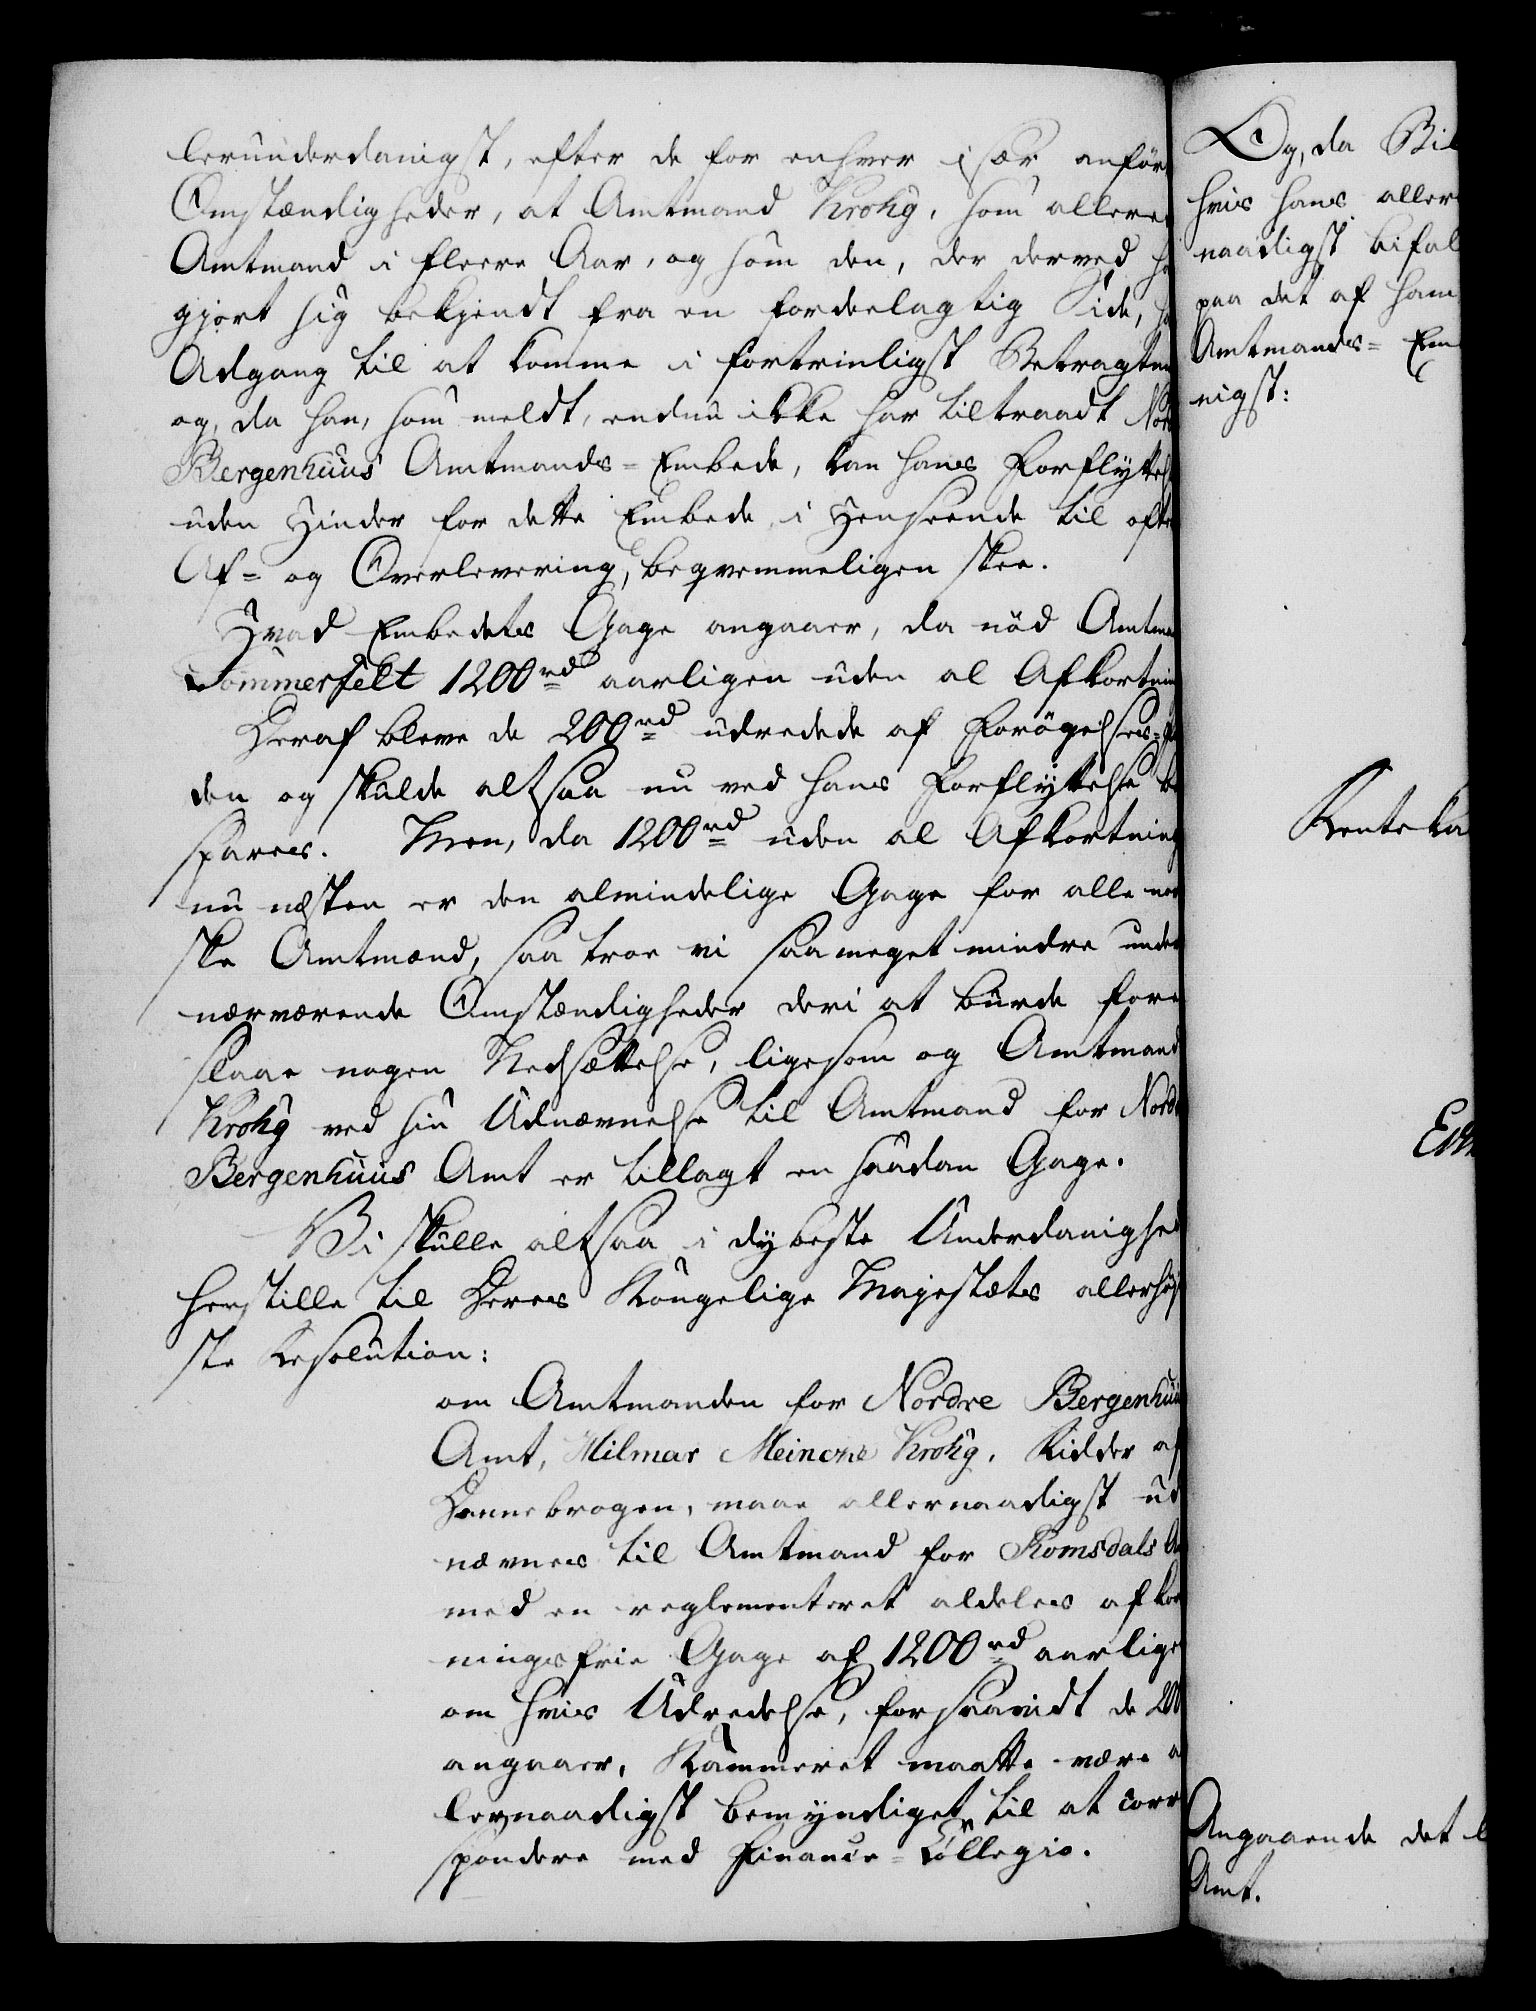 lerunderdanigst, efter de for enhver især anför
Omstændigheder, at Amtmand Krohg, som allere
Amtmand i fleere Aar, og som den, der derved
gjort sig bekjendt fra en fordeelagtig Side,
Adgang til at komme i fortrinligst Betragtn
og, da han, som meldt, endnu ikke har tiltraadt Nor
Bergenhuus Amtmands-Embede, kan hans Forflyttel
uden Hinder for dette Embede, i Henseende til ofte
Af- og Overlevering, beqvemmeligen skee.
Hvad Embedets Gage angaaer, da nöd Amtm
Sommerfelt 1200 rd aarligen uden al Afkortni
Deraf bleve de 200 rd udredede af Forögelses-
den og skulde altsaa nu ved hans Forflyttelse be
spares. Men, da 1200 rd uden al Afkortning
nu næsten er den almindelige Gage for alle nor
ske Amtmænd, saa troe vi saameget mindre under
nærværende Omstændigheder deri at burde fore
slaae nogen Nedsættelse, ligesom og Amtmand
Krohg ved sin Udnævnelse til Amtmand for Nord
Bergenhuus Amt er tillagt en saadan Gage.
Vi skulle altsaa i dybeste Underdanighed
henstille til Deres Kongelige Majestæts allerhöi
ste Resolution:
om Amtmanden for Nordre Bergenhuu
Amt, Hilmar Meincke Krohg, Ridder af
Dannebrogen, maae allernaadigst ud
nævnes til Amtmand for Romsdals A
med en reglementeret aldeles afkor
ningsfrie Gage af 1200 rd aarlige
om hvis Udredelse, forsaavidt de 200
angaaer, Kammeret maatte være a
lernaadigst bemyndiget til at corr
spondere med Finance-Collegio.
Og, da Bil
hvis hans aller
naadigst bifal
paa det af ham
Amtmands-Em
nigst:
Renteka
Angaaende det l
Amt.